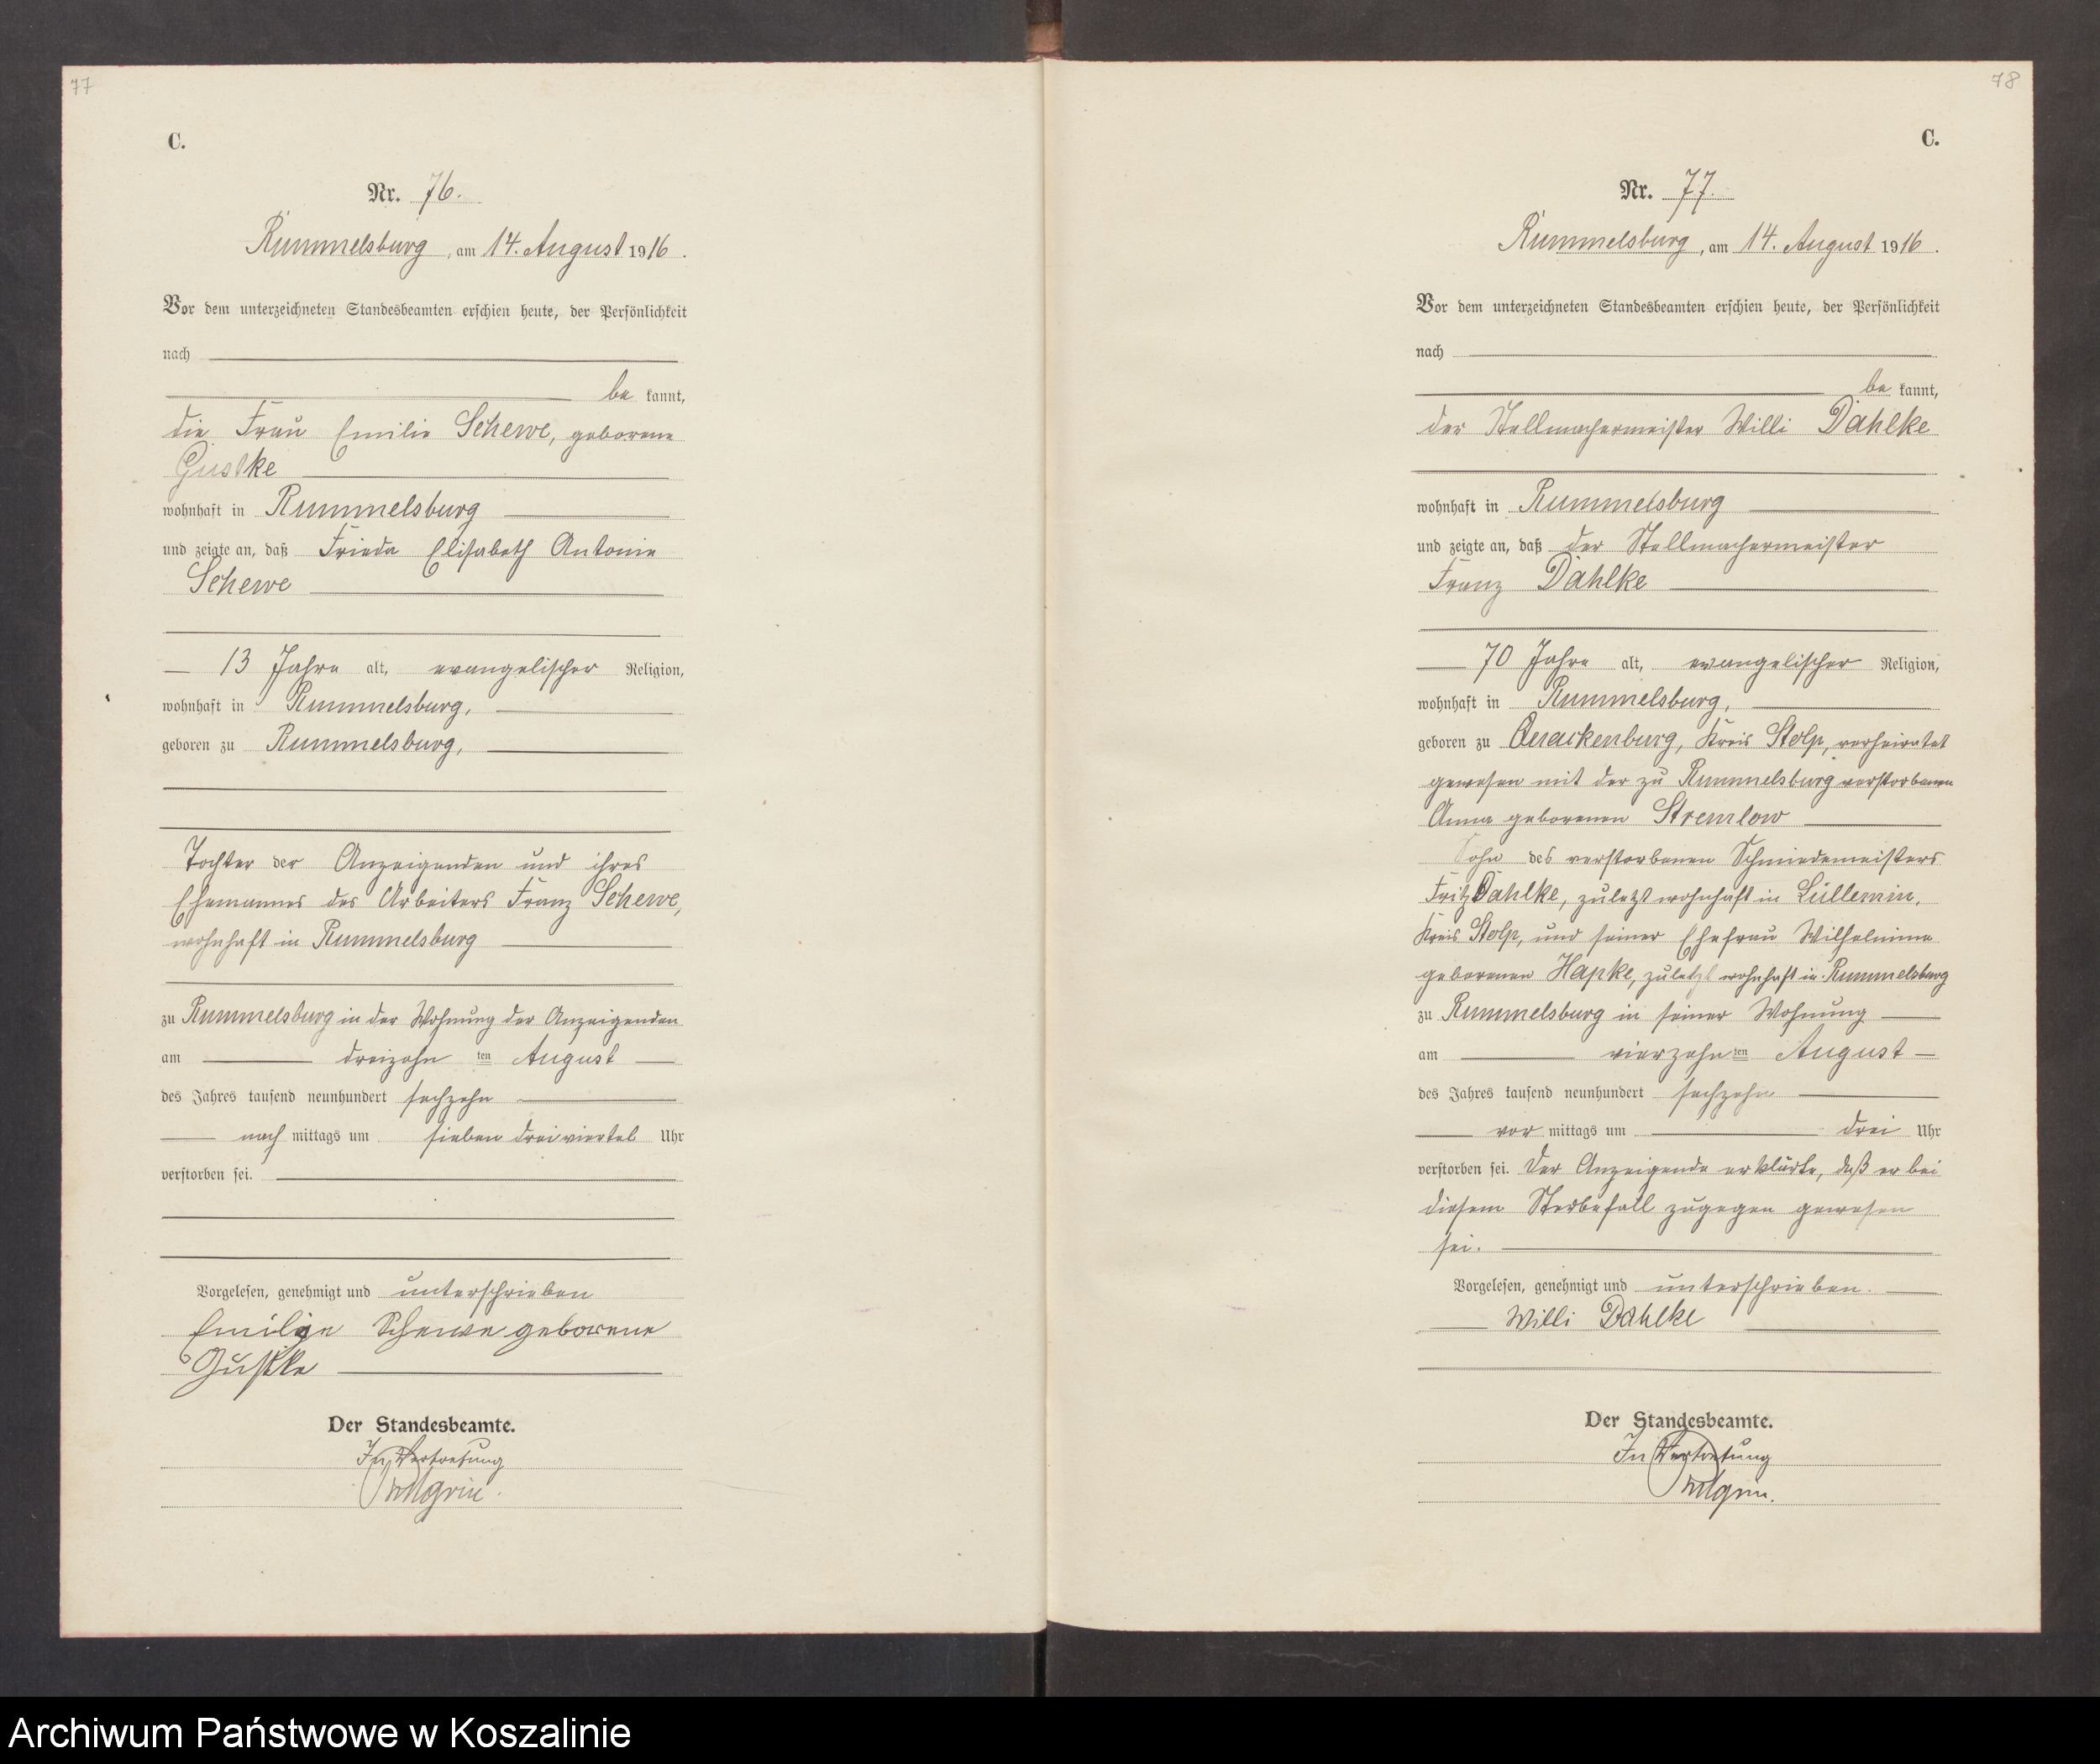 77
C.
Nr. 76.
Rummelsburg, am 14. August 1916.
Vor dem unterzeichneten Standesbeamten erschien heute, der Persönlichkeit
nach
be kannt,
die Frau Emilie Schewe, geborene
Gustke
wohnhaft in Rummelsburg
und zeigte an, daß Frieda Elisabeth Antonie
Schewe
13 Jahre alt, evangelischer Religion,
wohnhaft in Rummelsburg,
geboren zu Rummelsburg,
Tochter der Anzeigenden und ihres
Ehemannes des Arbeiters Franz Schewe,
wohnhaft in Rummelsburg
zu Rummelsburg in der Wohnung der Anzeigenden
am dreizehn ten August
des Jahres tausend neunhundert sechzehn
nach mittags um sieben dreiviertel Uhr
verstorben sei.
Vorgelesen, genehmigt und unterschrieben
Emilie Schewe geborene
Gustke
Der Standesbeamte.
In Vertretung
78
C.
Nr. 77.
Rummelsburg, am 14. August 1916.
Vor dem unterzeichneten Standesbeamten erschien heute, der Persönlichkeit
nach
be kannt,
der Stellmachermeister Willi Dahlke
wohnhaft in Rummelsburg
und zeigte an, daß der Stellmachermeister
Franz Dahlke
70 Jahre alt, evangelischer Religion,
wohnhaft in Rummelsburg,
geboren zu Quackenburg, Kreis Stolp, verheiratet
gewesen mit der zu Rummelsburg verstorbenen
Anna geborenen Stremlow
Sohn des verstorbenen Schmiedemeisters
Fritz Dahlke, zuletzt wohnhaft in Lüllemin,
Kreis Stolp, und seiner Ehefrau Wilhelmine
geborenen Hapke, zuletzt wohnhaft in Rummelsburg
zu Rummelsburg in seiner Wohnung
am vierzehn ten August
des Jahres tausend neunhundert sechzehn
vor mittags um drei Uhr
verstorben sei. Der Anzeigende erklärte, daß er bei
diesem Sterbefall zugegen gewesen
sei.
Vorgelesen, genehmigt und unterschrieben.
Willi Dahlke
Der Standesbeamte.
In Vertretung
Archiwum Państwowe w Koszalinie